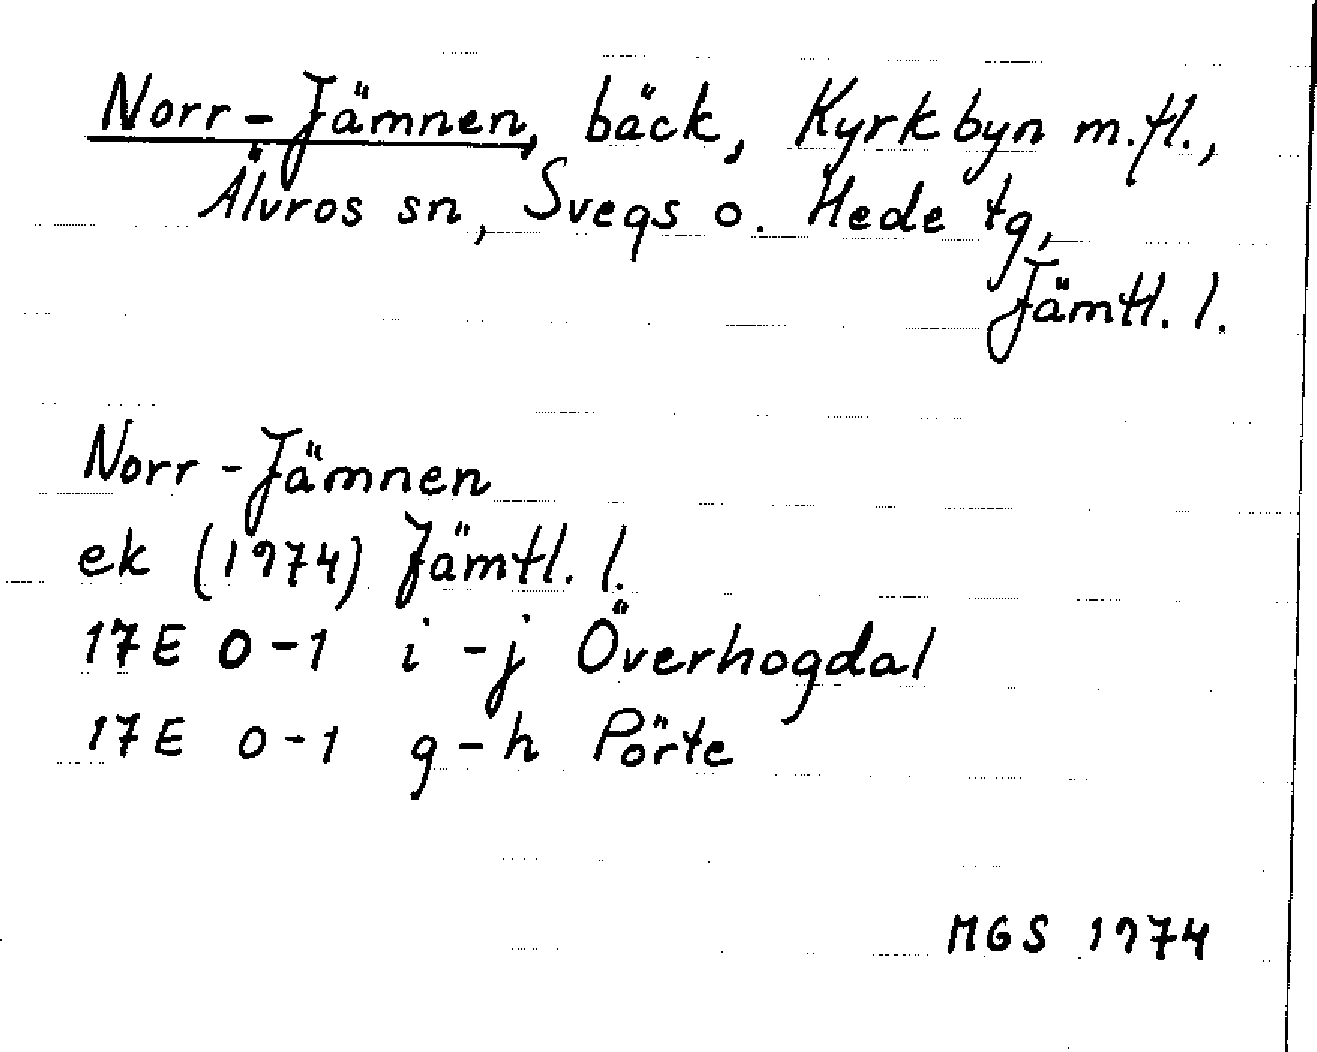 Norr-Jämnen, bäck, Kyrkbyn m.fl.,
Älvros sn, Svegs o. Hede tg,
Jämtl. l.
Norr-Jämnen
ek (1974) Jämtl. l.
17E 0-1 i-j Överhogdal
17E 0-1 g-h Pörte
MGS 1974